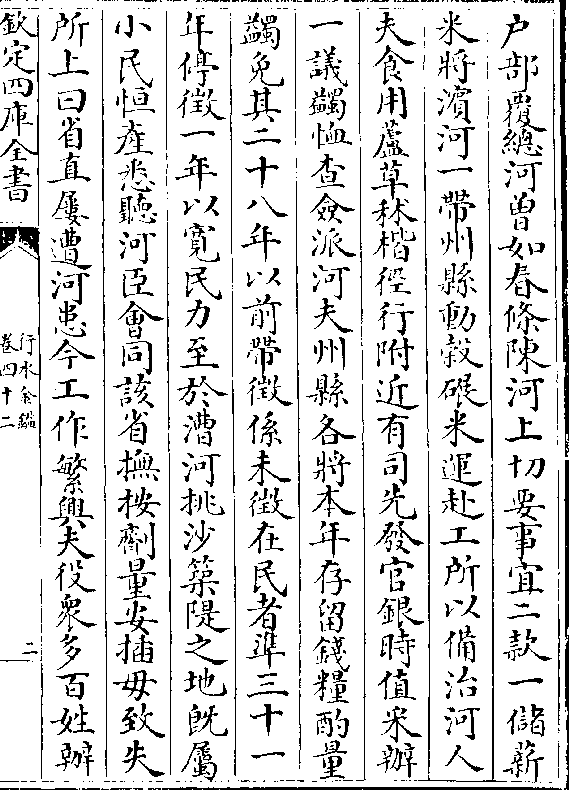 户部覆總河曽如春條陳河上切要事宜二款一儲薪
米將濵河一帶州縣動榖碾米運赴工所以備治河人
夫食用蘆草秫楷徑行附近有司先發官銀時值采辦
一議蠲恤查僉派河夫州縣各將本年存留錢糧酌量
蠲免其二十八年以前帶徵係未徵在民者準三十一
年停徵一年以寛民力至於漕河挑沙築隄之地既屬
小民恒產悉聽河臣會同該省撫按劑量安插毋致失
所上曰省直屢遭河患今工作繁興夫役衆多百姓辦
欽定四庫全書
行水金鑑
卷四十二
二